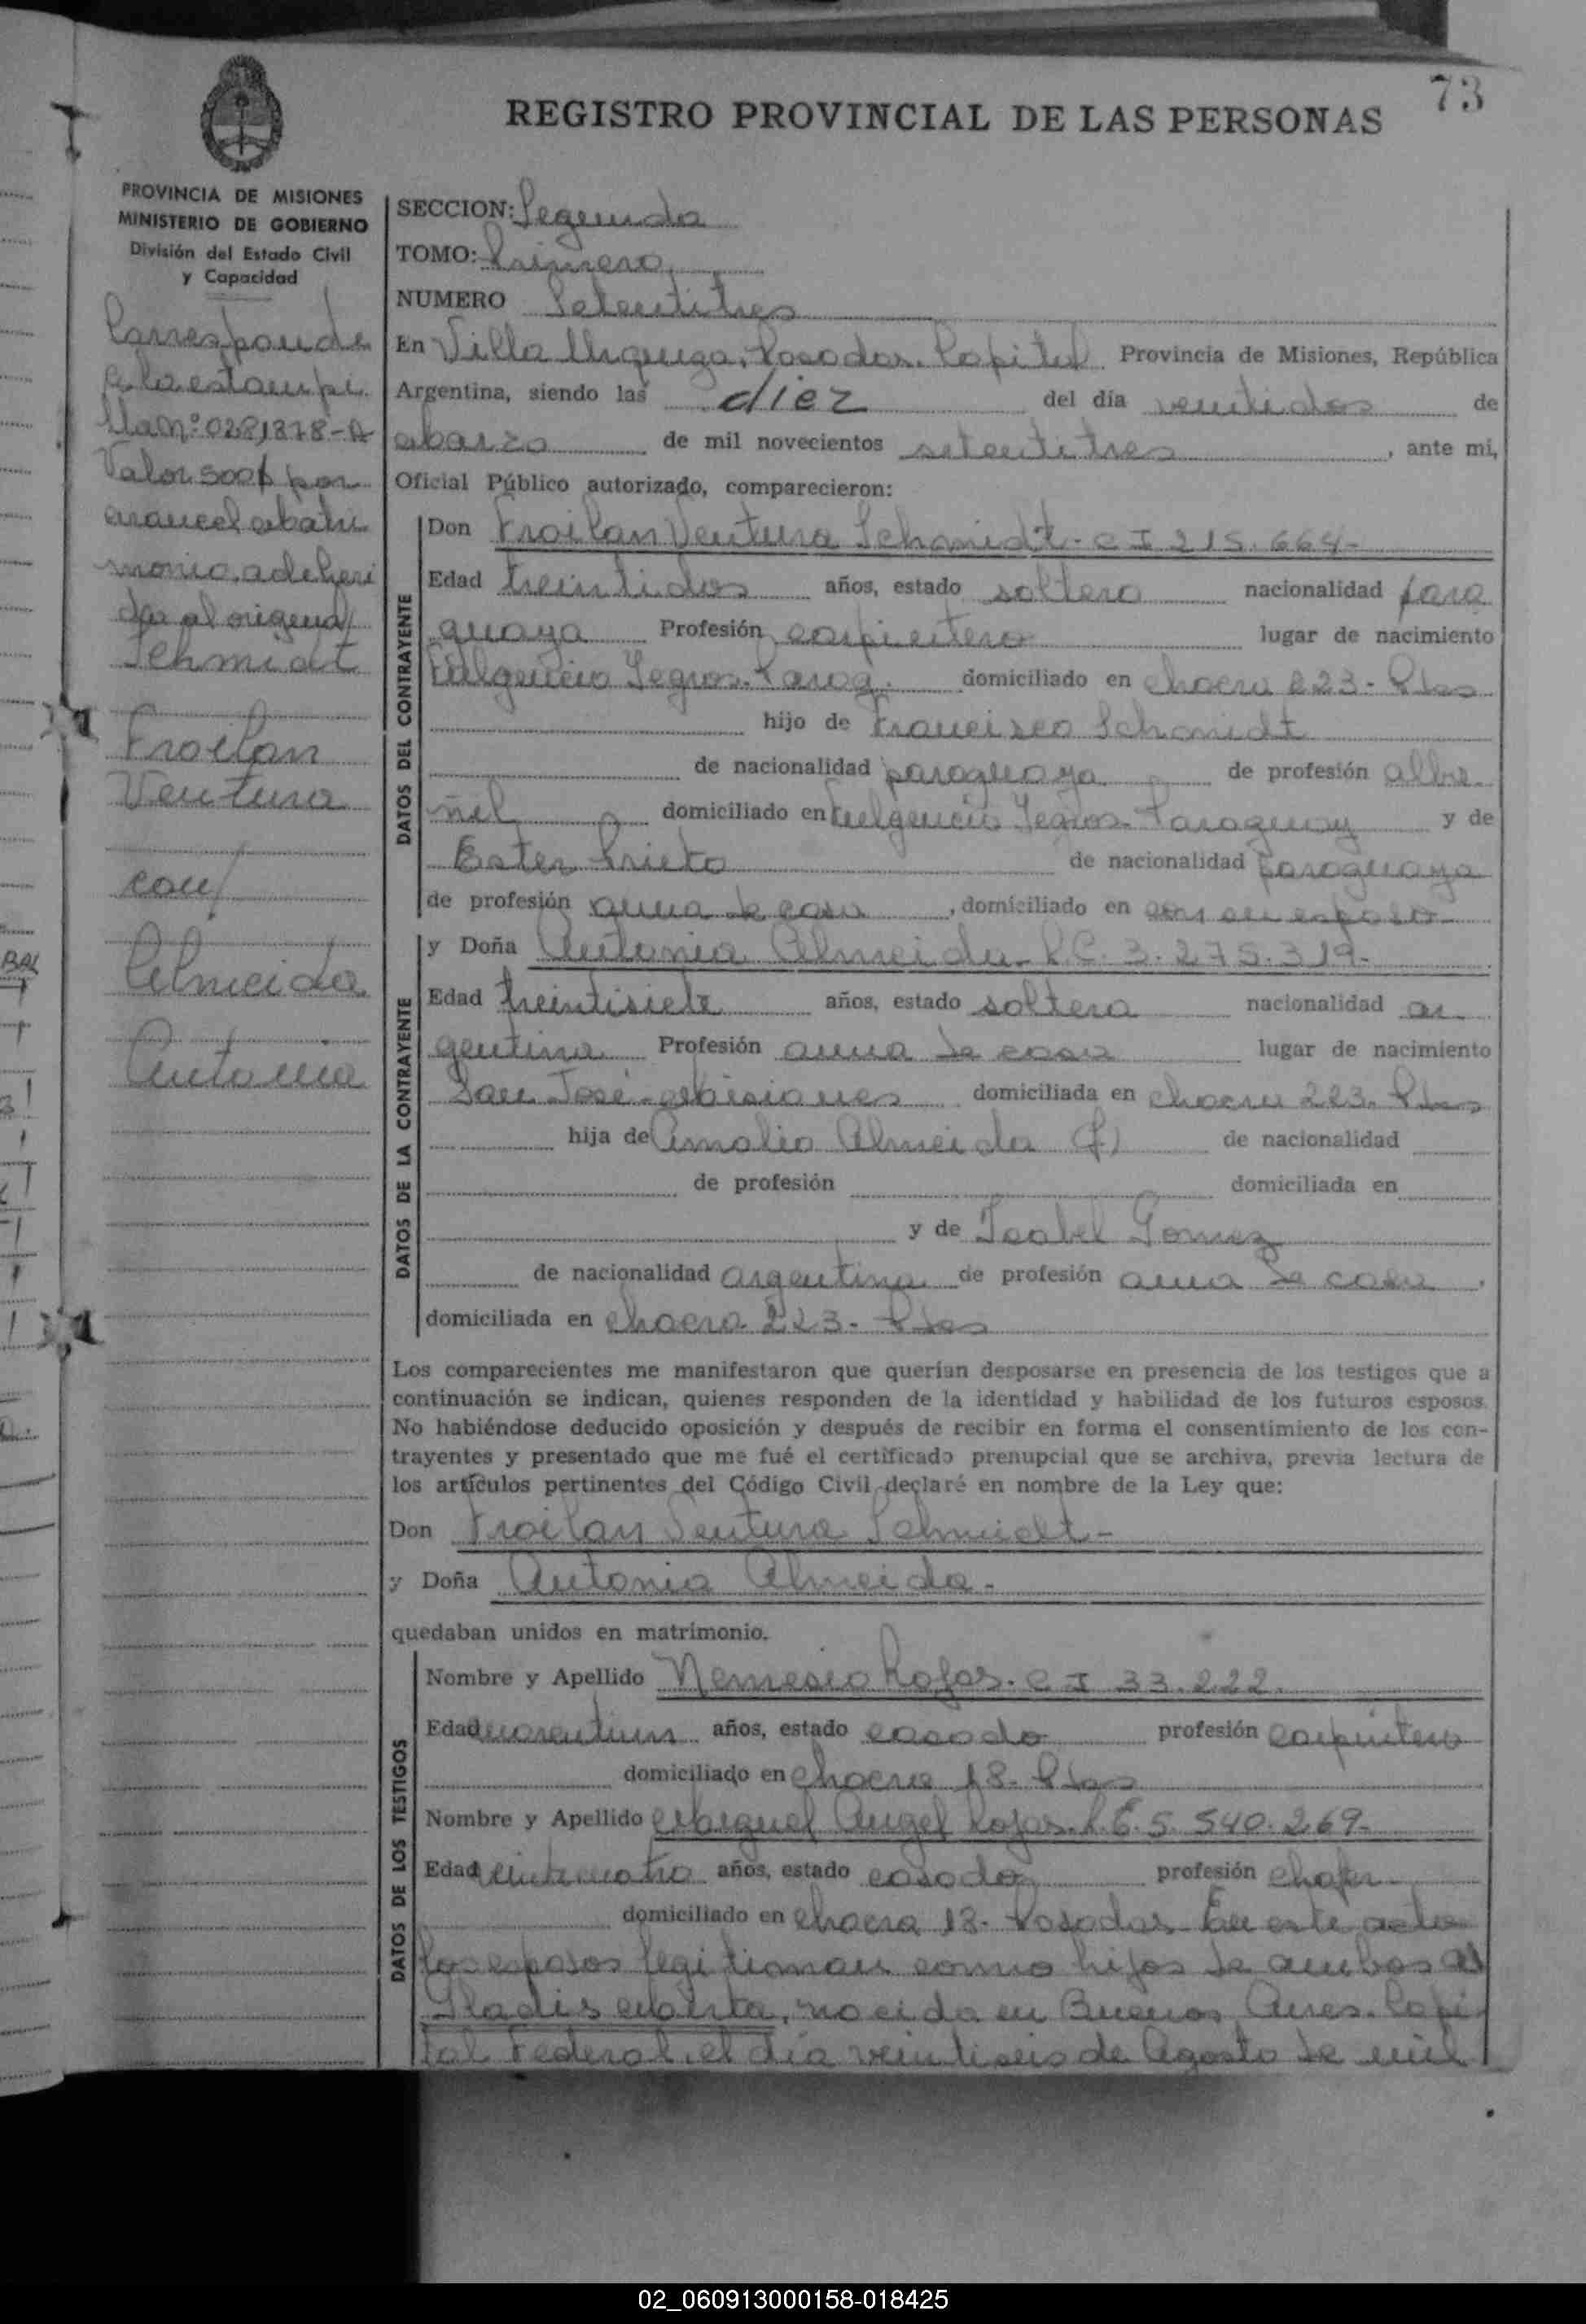 73
REGISTRO PROVINCIAL DE LAS PERSONAS
PROVINCIA DE MISIONES
MINISTERIO DE GOBIERNO
División del Estado Civil
y Capacidad
Corresponde
a la estampi
lla nº 0281378-A
Valor 500$ por
arancel Matri
monio, adheri
da al original
Schmidt
Froilan
Ventura
con/
Almeida
Antonia
SECCION: Segunda
TOMO: Primero
NUMERO Setentitres
En Villa Urquiza, Posadas. Capital Provincia de Misiones, República
Argentina, siendo las diez del día veintidos de
Marzo de mil novecientos setentitres, ante mi,
Oficial Público autorizado, comparecieron:
DATOS DEL CONTRAYENTE
Don Froilan Ventura Schmidt - C I 215.664-
Edad treintidos años, estado soltero nacionalidad para
guaya Profesión carpintero lugar de nacimiento
Fulgencio Yegros. Parag. domiciliado en chacra 223 - Pdas
hijo de Francisco Schmidt
de nacionalidad paraguaya de profesión alba
ñil domiciliado en Fulgencio Yegros - Paraguay y de
Ester Prieto de nacionalidad paraguaya
de profesión ama de casa, domiciliado en con su esposo
DATOS DE LA CONTRAYENTE
y Doña Antonia Almeida - L.C. 3.275.319-
Edad treintisiete años, estado soltera nacionalidad ar
gentina Profesión ama de casa lugar de nacimiento
San José - Misiones domiciliada en chacra 223. Pdas
hija de Amalio Almeida (f) de nacionalidad
de profesión domiciliada en
y de Isabel Gomez
de nacionalidad argentina de profesión ama de casa,
domiciliada en chacra 223 - Pdas
Los comparecientes me manifestaron que querían desposarse en presencia de los testigos que a
continuación se indican, quienes responden de la identidad y habilidad de los futuros esposos.
No habiéndose deducido oposición y después de recibir en forma el consentimiento de los con-
trayentes y presentado que me fué el certificado prenupcial que se archiva, previa lectura de
los artículos pertinentes del Código Civil declaré en nombre de la Ley que:
Don Froilan Ventura Schmidt -
y Doña Antonia Almeida -
quedaban unidos en matrimonio.
DATOS DE LOS TESTIGOS
Nombre y Apellido Nemesio Rojas. C I 33.222.
Edad cuarentiun años, estado casado profesión carpintero
domiciliado en chacra 18 - Pdas
Nombre y Apellido Miguel Angel Rojas. L.E. 5.540.269-
Edad veinticuatro años, estado casado profesión chofer
domiciliado en chacra 18 - Posadas - En este acto
los esposos legitiman como hijos de ambos a
Gladis Mirta, nacida en Buenos Aires. Capi
tal Federal, el día veintiseis de Agosto de mil
02_060913000158-018425